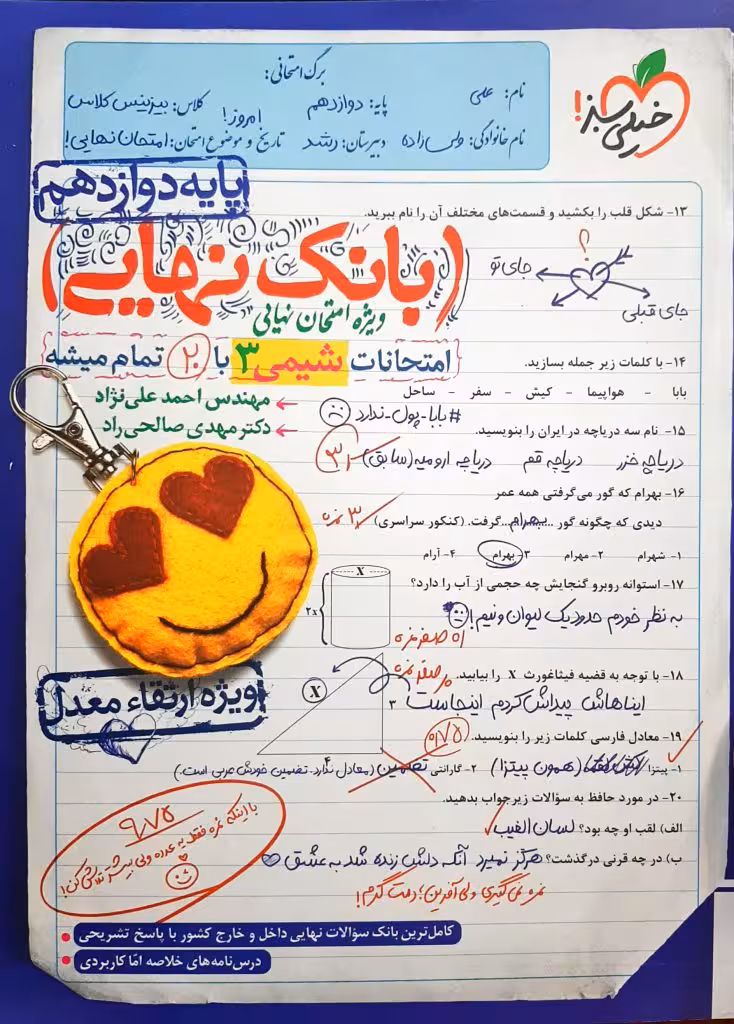 خیلی سبز!
برگ امتحانی:
نام: علی
پایه: دوازدهم
کلاس: بیزینس کلاس
نام خانوادگی: ولی‌زاده
دبیرستان: رشد
تاریخ و موضوع امتحان: امتحان نهایی!
امروز!
پایه دوازدهم
(بانک نهایی)
ویژه امتحان نهایی
امتحانات شیمی ۳ با ۲۰ تمام میشه
مهندس احمد علی‌نژاد
دکتر مهدی صالحی‌راد
۱۳- شکل قلب را بکشید و قسمت‌های مختلف آن را نام ببرید.
؟
جای تو
جای قبلی
۱۴- با کلمات زیر جمله بسازید.
بابا - هواپیما - کیش - سفر - ساحل
#بابا-پول-ندارد
۱۵- نام سه دریاچه در ایران را بنویسید.
دریاچه خزر دریاچه قم دریاچه ارومیه (سابق)
۱۶- بهرام که گور می‌گرفتی همه عمر
دیدی که چگونه گور ...بهرام... گرفت. (کنکور سراسری)
۳ نمره
۱- شهرام ۲- مهرام ۳- بهرام ۴- آرام
۱۷- استوانه روبرو گنجایش چه حجمی از آب را دارد؟
X
۲x
به نظر خودم حدود یک لیوان و نیم!
۱۸- با توجه به قضیه فیثاغورث X را بیابید.
صفر نمره
ایناهاش پیداش کردم اینجاست
X
۳
۴
۱۹- معادل فارسی کلمات زیر را بنویسید.
۱- پیتزا (همون پیتزا) ۲- گارانتی تضمین (معادل ندارد. تضمین خودش عربی است.)
۲۰- در مورد حافظ به سؤالات زیر جواب بدهید.
الف) لقب او چه بود؟ لسان الغیب
ب) در چه قرنی درگذشت؟ هرگز نمیرد آنکه دلش زنده شد به عشق
نمره نمی‌گیری ولی آفرین؛ دمت گرم!
ویژه ارتقاء معدل
۹/۷۵
با اینکه نمره فقط یه عدده ولی بیشتر تلاش کن!
کامل‌ترین بانک سوالات نهایی داخل و خارج کشور با پاسخ تشریحی
درس‌نامه‌های خلاصه امّا کاربردی